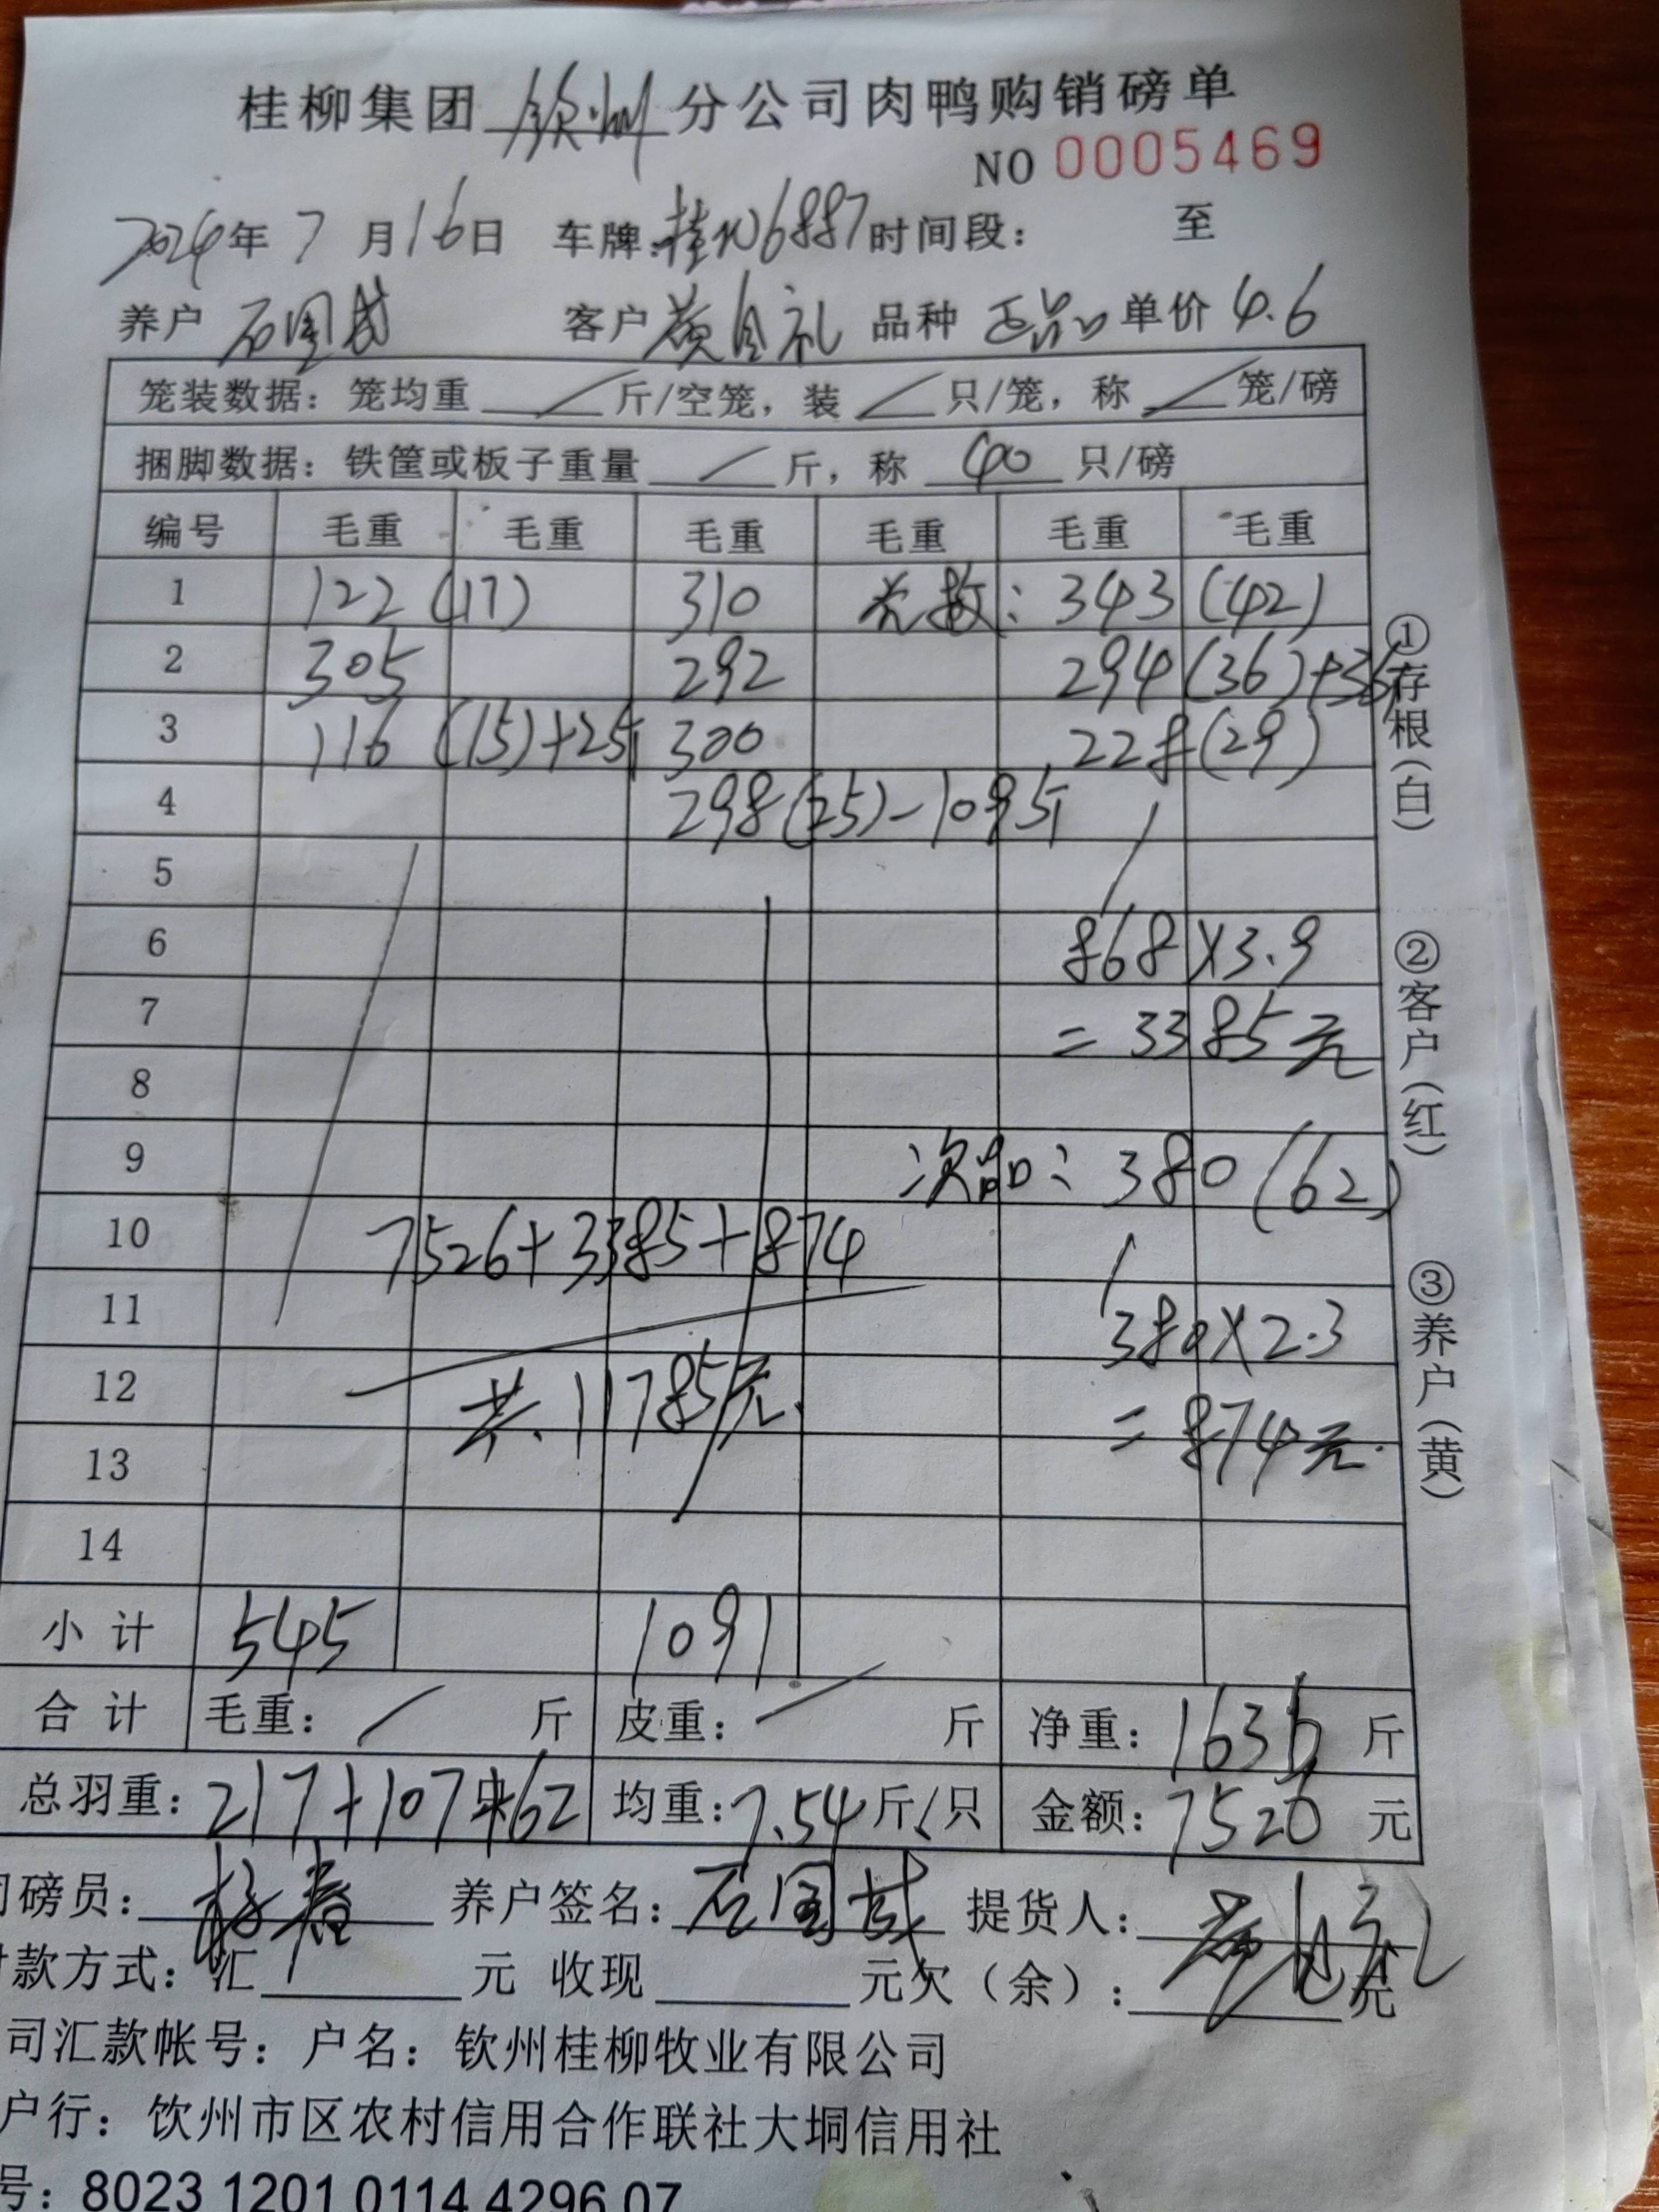 桂柳集团 钦州 分公司肉鸭购销磅单
NO 0005469
2024年 7 月16日 车牌:桂N06887时间段: 至
养户 石国 客户 黄自礼 品种 正品 单价 4.6
笼装数据：笼均重 / 斤/空笼，装 / 只/笼，称 / 笼/磅
捆脚数据：铁筐或板子重量 / 斤，称 40 只/磅
编号 毛重 毛重 毛重 毛重 毛重 毛重
1 122 (17) 310 数: 343 (42)
2 305 292 294 (36)+3斤
3 116 (15)+2斤 300 228 (29)
4 298 (25)-109斤
5
6 868×3.9
7 =3385元
8
9 次品: 380 (62)
10 7526+3385+874
11 380×2.3
12 共.11785元.
13 =874元.
14
小计 545 1091
合计 毛重: / 斤 皮重: / 斤 净重: 1636 斤
总羽重: 217+107+62 均重:7.54斤/只 金额:7526 元
司磅员: 养户签名:石国 提货人:黄自礼
付款方式: 汇 元 收现 元欠（余）: 元
司汇款帐号：户名：钦州桂柳牧业有限公司
户行：饮州市区农村信用合作联社大垌信用社
号：8023 1201 0114 4296 07
①存根（白）
②客户（红）
③养户（黄）